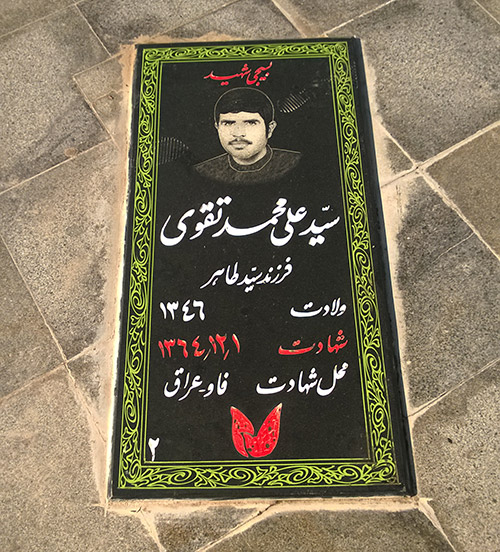 بسیجی شهید
سیّد علی محمد تقوی
فرزند سیّد طاهر
ولادت ۱۳۴۶
شهادت ۱۳۶۴/۱۲/۱
محل شهادت فاو عراق
۲